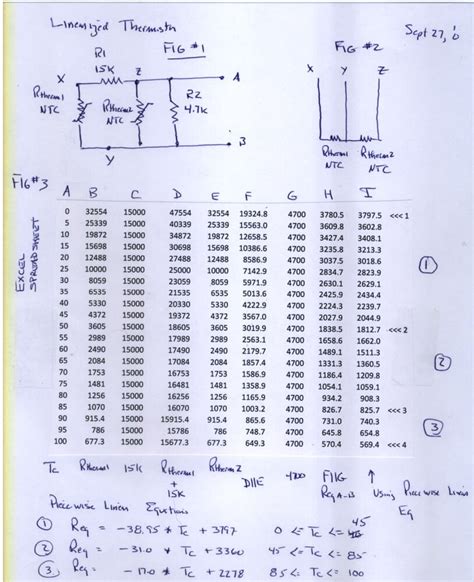 Linearized Thermistor
Sept 27, '0
FIG #1
FIG #2
R1
15K
X
Z
A
X Y Z
Rtherm1
NTC
Rtherm2
NTC
R2
4.7K
B
Y
Rtherm1
NTC
Rtherm2
NTC
FIG #3
EXCEL
SPREADSHEET
A B C D E F G H I
0 32554 15000 47554 32554 19324.8 4700 3780.5 3797.5 <<< 1
5 25339 15000 40339 25339 15563.0 4700 3609.8 3602.8
10 19872 15000 34872 19872 12658.5 4700 3427.4 3408.1
15 15698 15000 30698 15698 10386.6 4700 3235.8 3213.3
20 12488 15000 27488 12488 8586.9 4700 3037.5 3018.6
25 10000 15000 25000 10000 7142.9 4700 2834.7 2823.9
30 8059 15000 23059 8059 5971.9 4700 2630.1 2629.1
35 6535 15000 21535 6535 5013.6 4700 2425.9 2434.4
40 5330 15000 20330 5330 4222.9 4700 2224.3 2239.7
45 4372 15000 19372 4372 3567.0 4700 2027.9 2044.9
50 3605 15000 18605 3605 3019.9 4700 1838.5 1812.7 <<< 2
55 2989 15000 17989 2989 2563.1 4700 1658.6 1662.0
60 2490 15000 17490 2490 2179.7 4700 1489.1 1511.3
65 2084 15000 17084 2084 1857.4 4700 1331.3 1360.5
70 1753 15000 16753 1753 1586.9 4700 1186.4 1209.8
75 1481 15000 16481 1481 1358.9 4700 1054.1 1059.1
80 1256 15000 16256 1256 1165.9 4700 934.2 908.3
85 1070 15000 16070 1070 1003.2 4700 826.7 825.7 <<< 3
90 915.4 15000 15915.4 915.4 865.6 4700 731.0 740.3
95 786 15000 15786 786 748.7 4700 645.8 654.8
100 677.3 15000 15677.3 677.3 649.3 4700 570.4 569.4 <<< 4
①
②
③
Tc Rtherm1 15K Rtherm1 + 15K Rtherm2 D||E 4700 F||G Req A-B ↑ Using Piece wise Linear Eq
Piece wise Linear Equations
① Req = -38.95 * Tc + 3797 0 <= Tc <= 45
② Req = -31.0 * Tc + 3360 45 <= Tc <= 85
③ Req = -17.0 * Tc + 2278 85 <= Tc <= 100